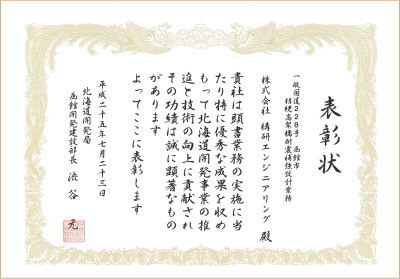 表彰状
一般国道２２８号　函館市
桔梗高架橋耐震補強設計業務
株式会社　構研エンジニアリング　殿
貴社は頭書業務の実施に当
たり特に優秀な成果を収め
もって北海道開発事業の推
進と技術の向上に貢献され
その功績は誠に顕著なもの
があります
よってここに表彰します
平成二十五年七月二十三日
北海道開発局
函館開発建設部長　渋谷　元